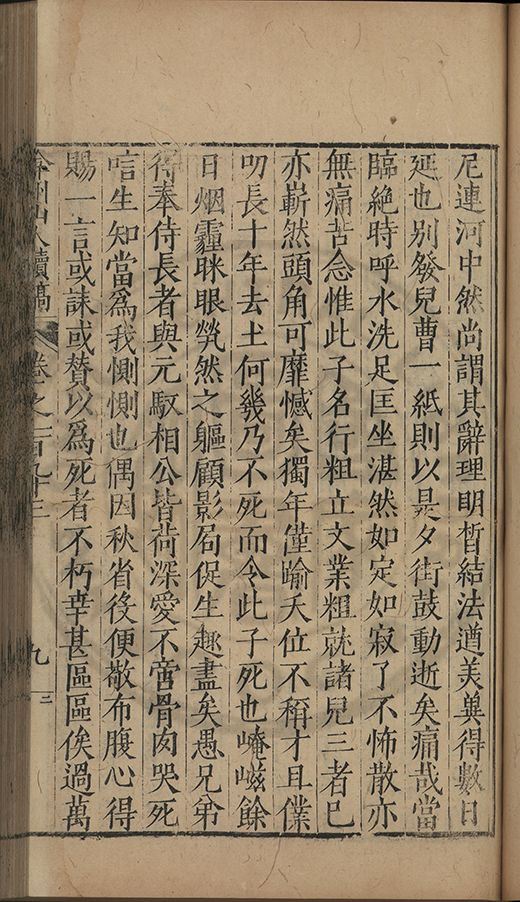 尼連河中然尚謂其辭理明晳結法遒美兾得數日
延也別發兒曹一紙則以是夕街鼓動逝矣痛哉當
臨絶時呼水洗足匡坐湛然如定如寂了不怖散亦
無痛苦念惟此子名行粗立文業粗就諸兒三者巳
亦嶄然頭角可靡憾矣獨年僅踰夭位不稱才且僕
叨長十年去土何幾乃不死而令此子死也崦嵫餘
日烟霾眯眼煢然之軀顧影局促生趣盡矣愚兄弟
得奉侍長者與元馭相公皆荷深愛不啻骨肉哭死
唁生知當爲我惻惻也偶因秋省後便敬布腹心得
賜一言或誄或賛以爲死者不朽幸甚區區俟過萬
弇州山人續稿 卷之一百九十三 九 三